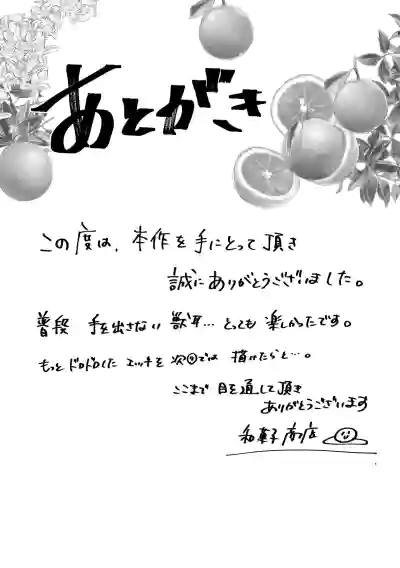 あとがき
この度は、本作を手にとって頂き
誠にありがとうございました。
普段 手を出さない 獣耳… とっても 楽しかったです。
もっとドロドロした エッチを 次では 描けたらと…。
ここまで 目を通して頂き
ありがとうございます
和菓子商店